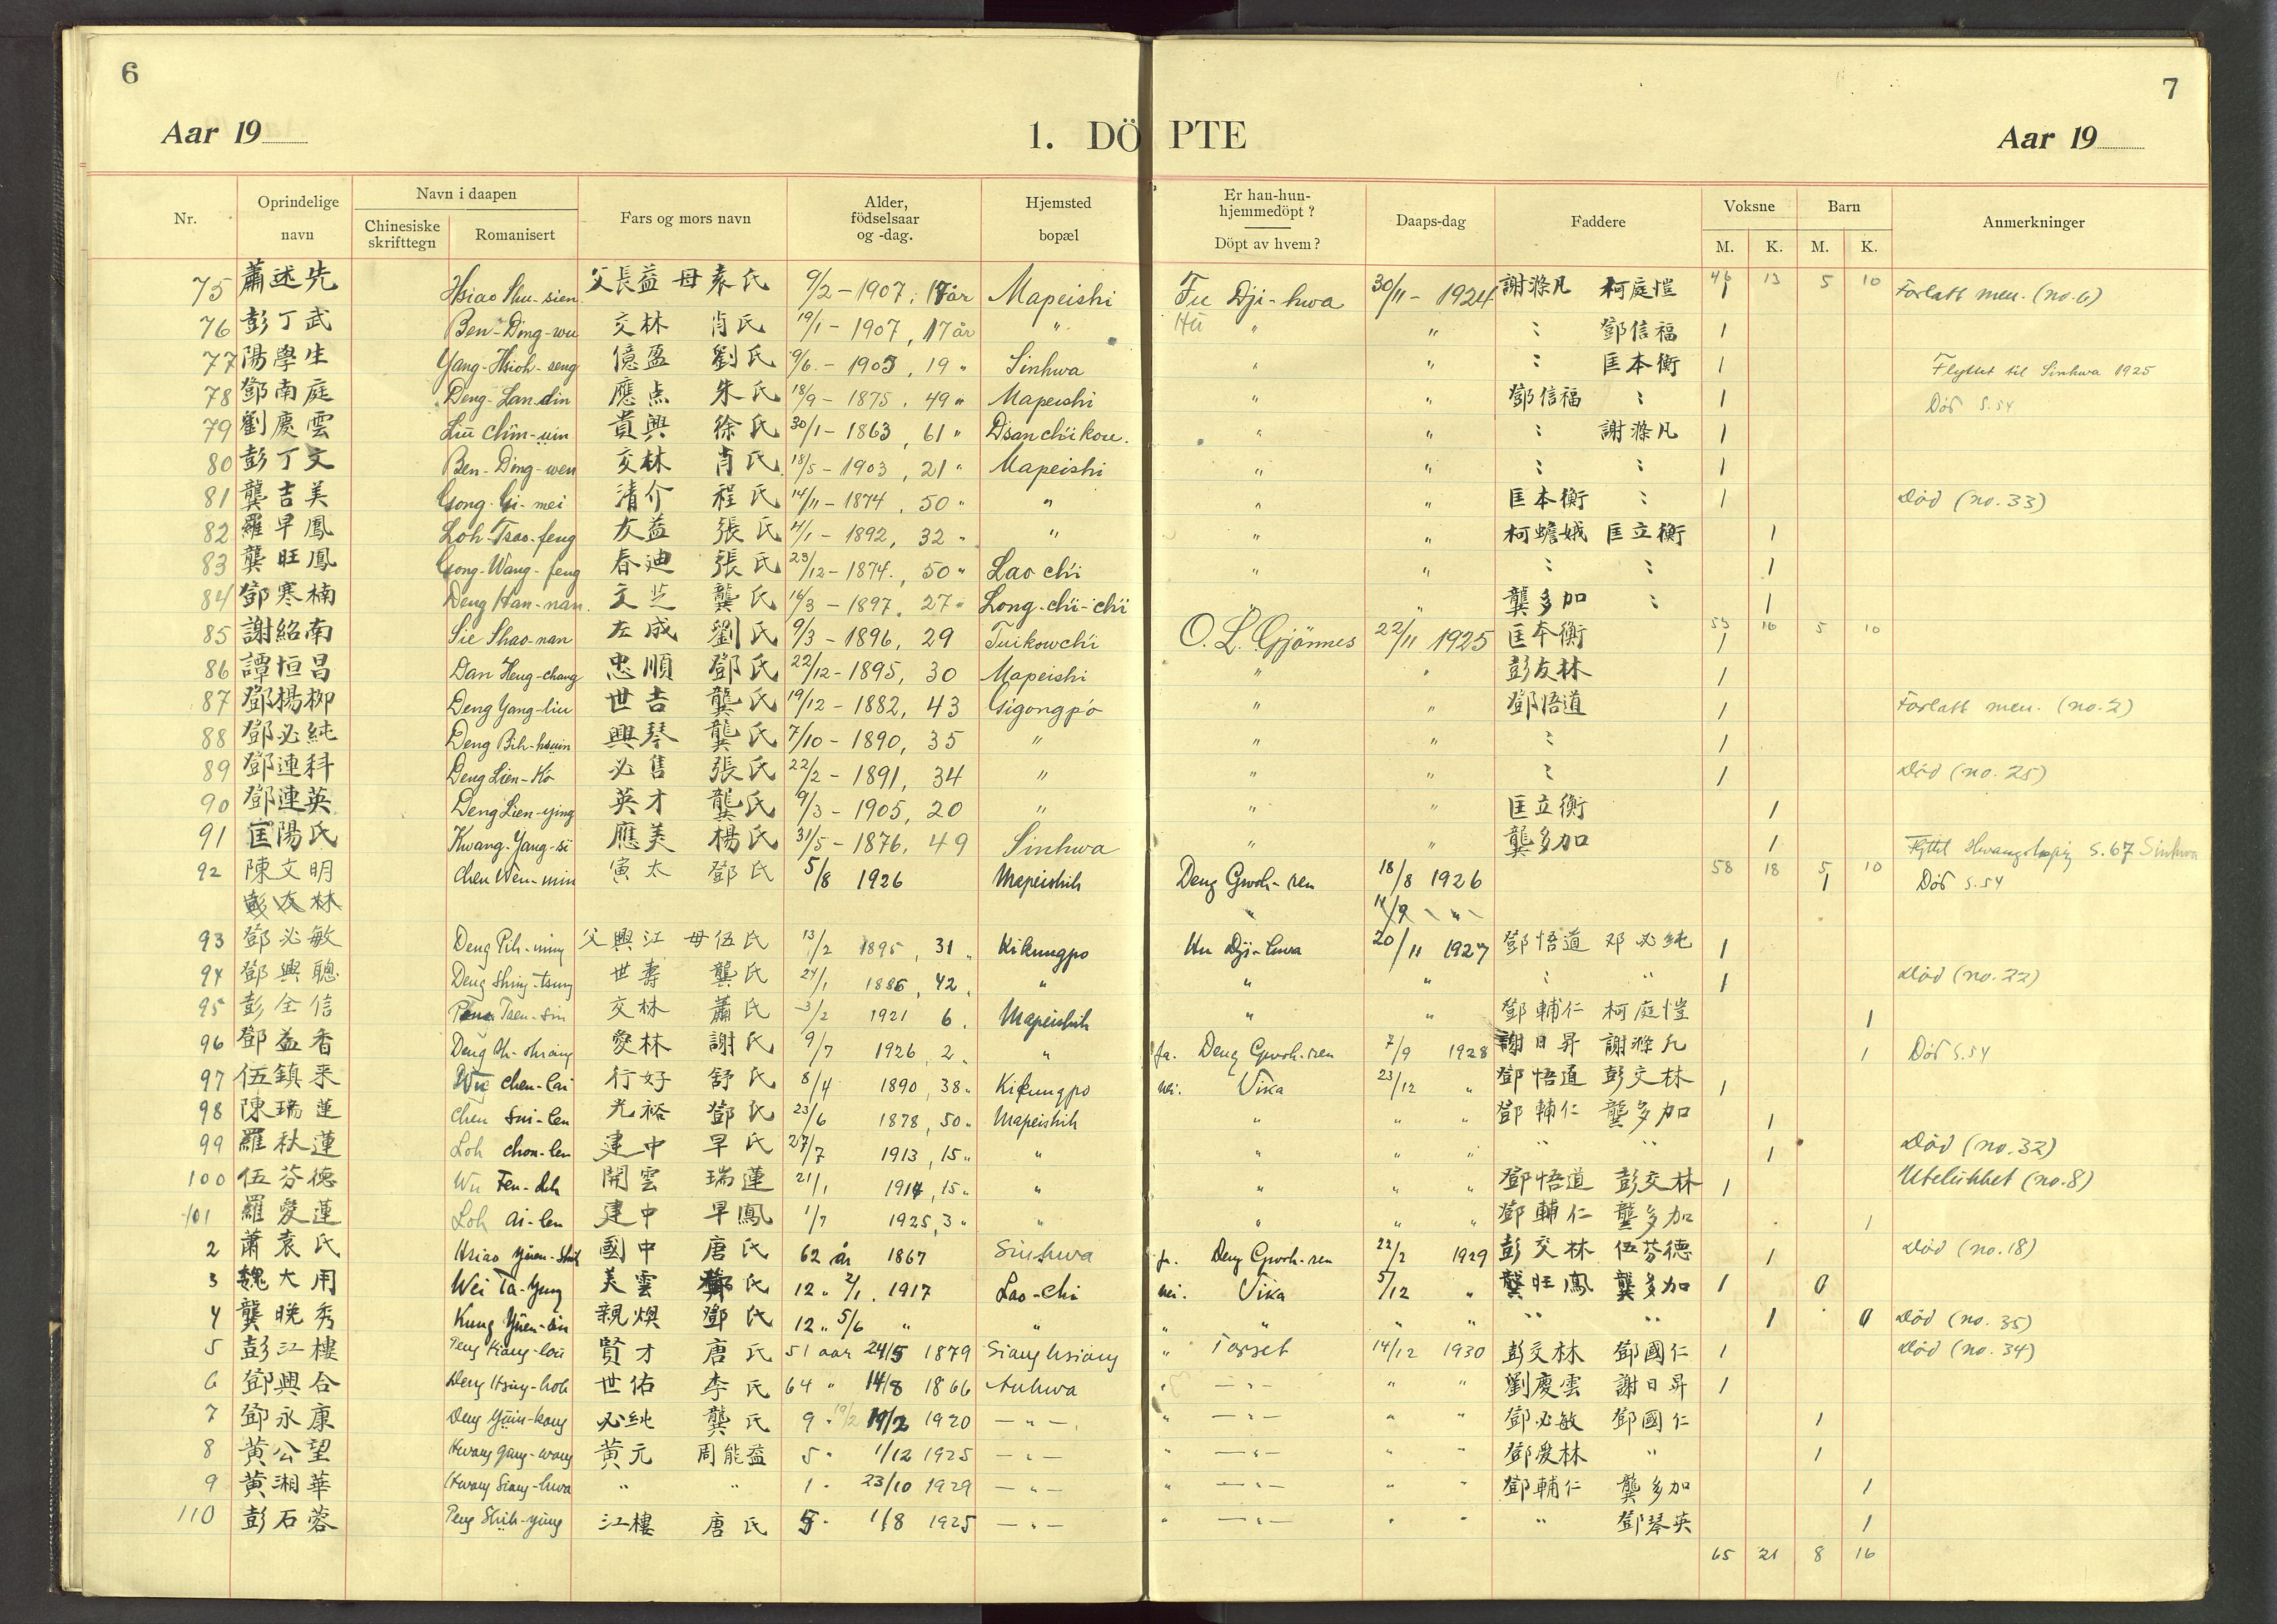 6
7
Aar 19
1. DÖPTE
Aar 19
Nr. Oprindelige navn Navn i daapen Chinesiske skrifttegn Romanisert Fars og mors navn Alder, födselsaar og -dag. Hjemsted bopæl Er han-hun-hjemmedöpt? Döpt av hvem? Daaps-dag Faddere Voksne M. K. Barn M. K. Anmerkninger
46 13 5 10
75 蕭述先 Hsiao Shu-sien 父長益 母袁氏 9/2 - 1907, 17 år Mapeishi Fu Dji-hwa 30/11 - 1924 謝滌凡 柯庭愷 1 Forlatt men. (no. 6)
76 彭丁武 Ben-Ding-wu 交林 肖氏 19/1 - 1907, 17 år " Hü " " : 鄧信福 1
77 陽學生 Yang-Hsioh-seng 億盈 劉氏 9/6 - 1905, 19 " Sinhwa " " : 匡本衡 1 Flyttet til Sinhwa 1925
78 鄧南庭 Deng-Lan-din 應点 朱氏 18/9 - 1875, 49 " Mapeishi " " 鄧信福 : 1 Död S. 54
79 劉慶雲 Liu Chin-uin 貴興 徐氏 30/1 - 1863, 61 " Dsanchikou. " " : 謝滌凡 1
80 彭丁文 Ben-Ding-wen 交林 肖氏 18/5 - 1903, 21 " Mapeishi " " : : 1
81 龔吉美 Gong-Gi-mei 清介 程氏 14/11 - 1874, 50 " " " " 匡本衡 : 1 Död (no. 33)
82 羅早鳳 Loh-Tsao-feng 友益 張氏 4/1 - 1892, 32 " " " " 柯蟾娥 匡立衡 1
83 龔旺鳳 Gong-Wang-feng 春迪 張氏 23/12 - 1874, 50 " Lao chi " " : : 1
84 鄧寒楠 Deng Han-nan. 文芝 龔氏 16/3 - 1897, 27 " Long-chi-chi " " 龔多加 : 1
55 16 5 10
85 謝紹南 Sie Shao-nan 左成 劉氏 9/3 - 1896, 29 Tuikowchi O. L. Gjönnes 22/11 1925 匡本衡 1
86 譚恒昌 Dan Heng-chang 忠順 鄧氏 22/12 - 1895, 30 Mapeishi " " 彭友林 1
87 鄧楊柳 Deng Yang-liu 世吉 龔氏 19/12 - 1882, 43 Gigongpo " " 鄧悟道 1 Forlatt men. (no. 2)
88 鄧必純 Deng Bih-hsuin 興琴 龔氏 7/10 - 1890, 35 " " " : 1
89 鄧連科 Deng Lien-Ko 必售 張氏 22/2 - 1891, 34 " " " : 1 Död (no. 25)
90 鄧連英 Deng Lien-ying 英才 龔氏 9/3 - 1905, 20 " " " 匡立衡 1
91 匡陽氏 Kwang-Yang-si 應美 楊氏 31/5 - 1876, 49 Sinhwa " " 龔多加 1 S. 67 Sinhwa
58 18 5 10
92 陳文明 Chen Wen-min 寅太 鄧氏 5/8 1926 Mapeishih Deng Gwoh-ren 18/8 1926 1 Död S. 54
彭友林 " 11/9 "
93 鄧必敏 Deng Pih-ming 父興江 母伍氏 13/2 1895, 31 " Kikungpo Hu Dji-hwa 20/11 1927 鄧悟道 邓必純 1
94 鄧興聰 Deng Shing-tsung 世壽 龔氏 24/1 1886, 42 " " " " : " 1 Död (no. 22)
95 彭全信 Peng Tsen-sin 交林 蕭氏 3/2 1921 6. Mapeishih " " 鄧輔仁 柯庭愷 1
96 鄧益香 Deng Ih-shiang 愛林 謝氏 9/7 1926, 2 " " ja. Deng Gwoh-ren 7/9 1928 謝日昇 謝滌凡 1 Död S. 54
97 伍鎮来 Wu Chen-lai 行好 舒氏 8/4 1890, 38 " Kikungpo nei. Vika 23/12 " 鄧悟道 彭交林 1
98 陳瑞蓮 Chen Sui-len 光裕 鄧氏 23/6 1878, 50 " Mapeishih " " " 鄧輔仁 龔多加 1
99 羅秋蓮 Loh Chou-len 建中 早氏 27/7 1913, 15 " " " " " " " 1 Död (no. 32)
100 伍芬德 Wu Fen-deh 開雲 瑞蓮 21/1 1914, 15 " " " " " 鄧悟道 彭交林 1 Utelukket (no. 8)
101 羅愛蓮 Loh Ai-len 建中 早鳳 1/7 1925, 3 " " " " " 鄧輔仁 龔多加 1
2 蕭袁氏 Hsiao Yüen-Shih 國中 唐氏 62 år 1867 Sinhwa ja. Deng Gwoh-ren 22/2 1929 彭交林 伍芬德 1 Död (no. 18)
3 魏大用 Wei Ta-Yung 美雲 鄧氏 12 " 2/1. 1917 Lao-chi nei. Vika 5/12 " 龔旺鳳 龔多加 1 0
4 龔晚秀 Kung Yüen-siu 親煥 鄧氏 12 " 5/6 " " " " " " " " 1 0 Död (no. 35)
5 彭江樓 Peng Kiang-lou 賢才 唐氏 51 aar 24/5 1879 Siang hsiang " Torset 14/12 1930 彭交林 鄧國仁 1 Död (no. 34)
6 鄧興合 Deng Hsing-hoh 世佑 李氏 64 " 14/8 1866 Anhwa " — " — " " 劉慶雲 謝日昇 1
7 鄧永康 Deng Yüin-kang 必純 龔氏 9 " 19/2 19/2 1920 — " — " — " — " " 鄧必敏 鄧國仁 1
8 黃公望 Hwang Gung-wang 黃元 周能益 5 " 1/12 1925 — " — " — " — " " 鄧愛林 " 1
9 黃湘華 Hwang Siang-hwa " " 1 " 23/10 1929 — " — " — " — " " 鄧輔仁 龔多加 1
110 彭石蓉 Peng Shih-yung 江樓 唐氏 5 " 1/8 1925 — " — " — " — " " " 鄧琴英 1
65 21 8 16